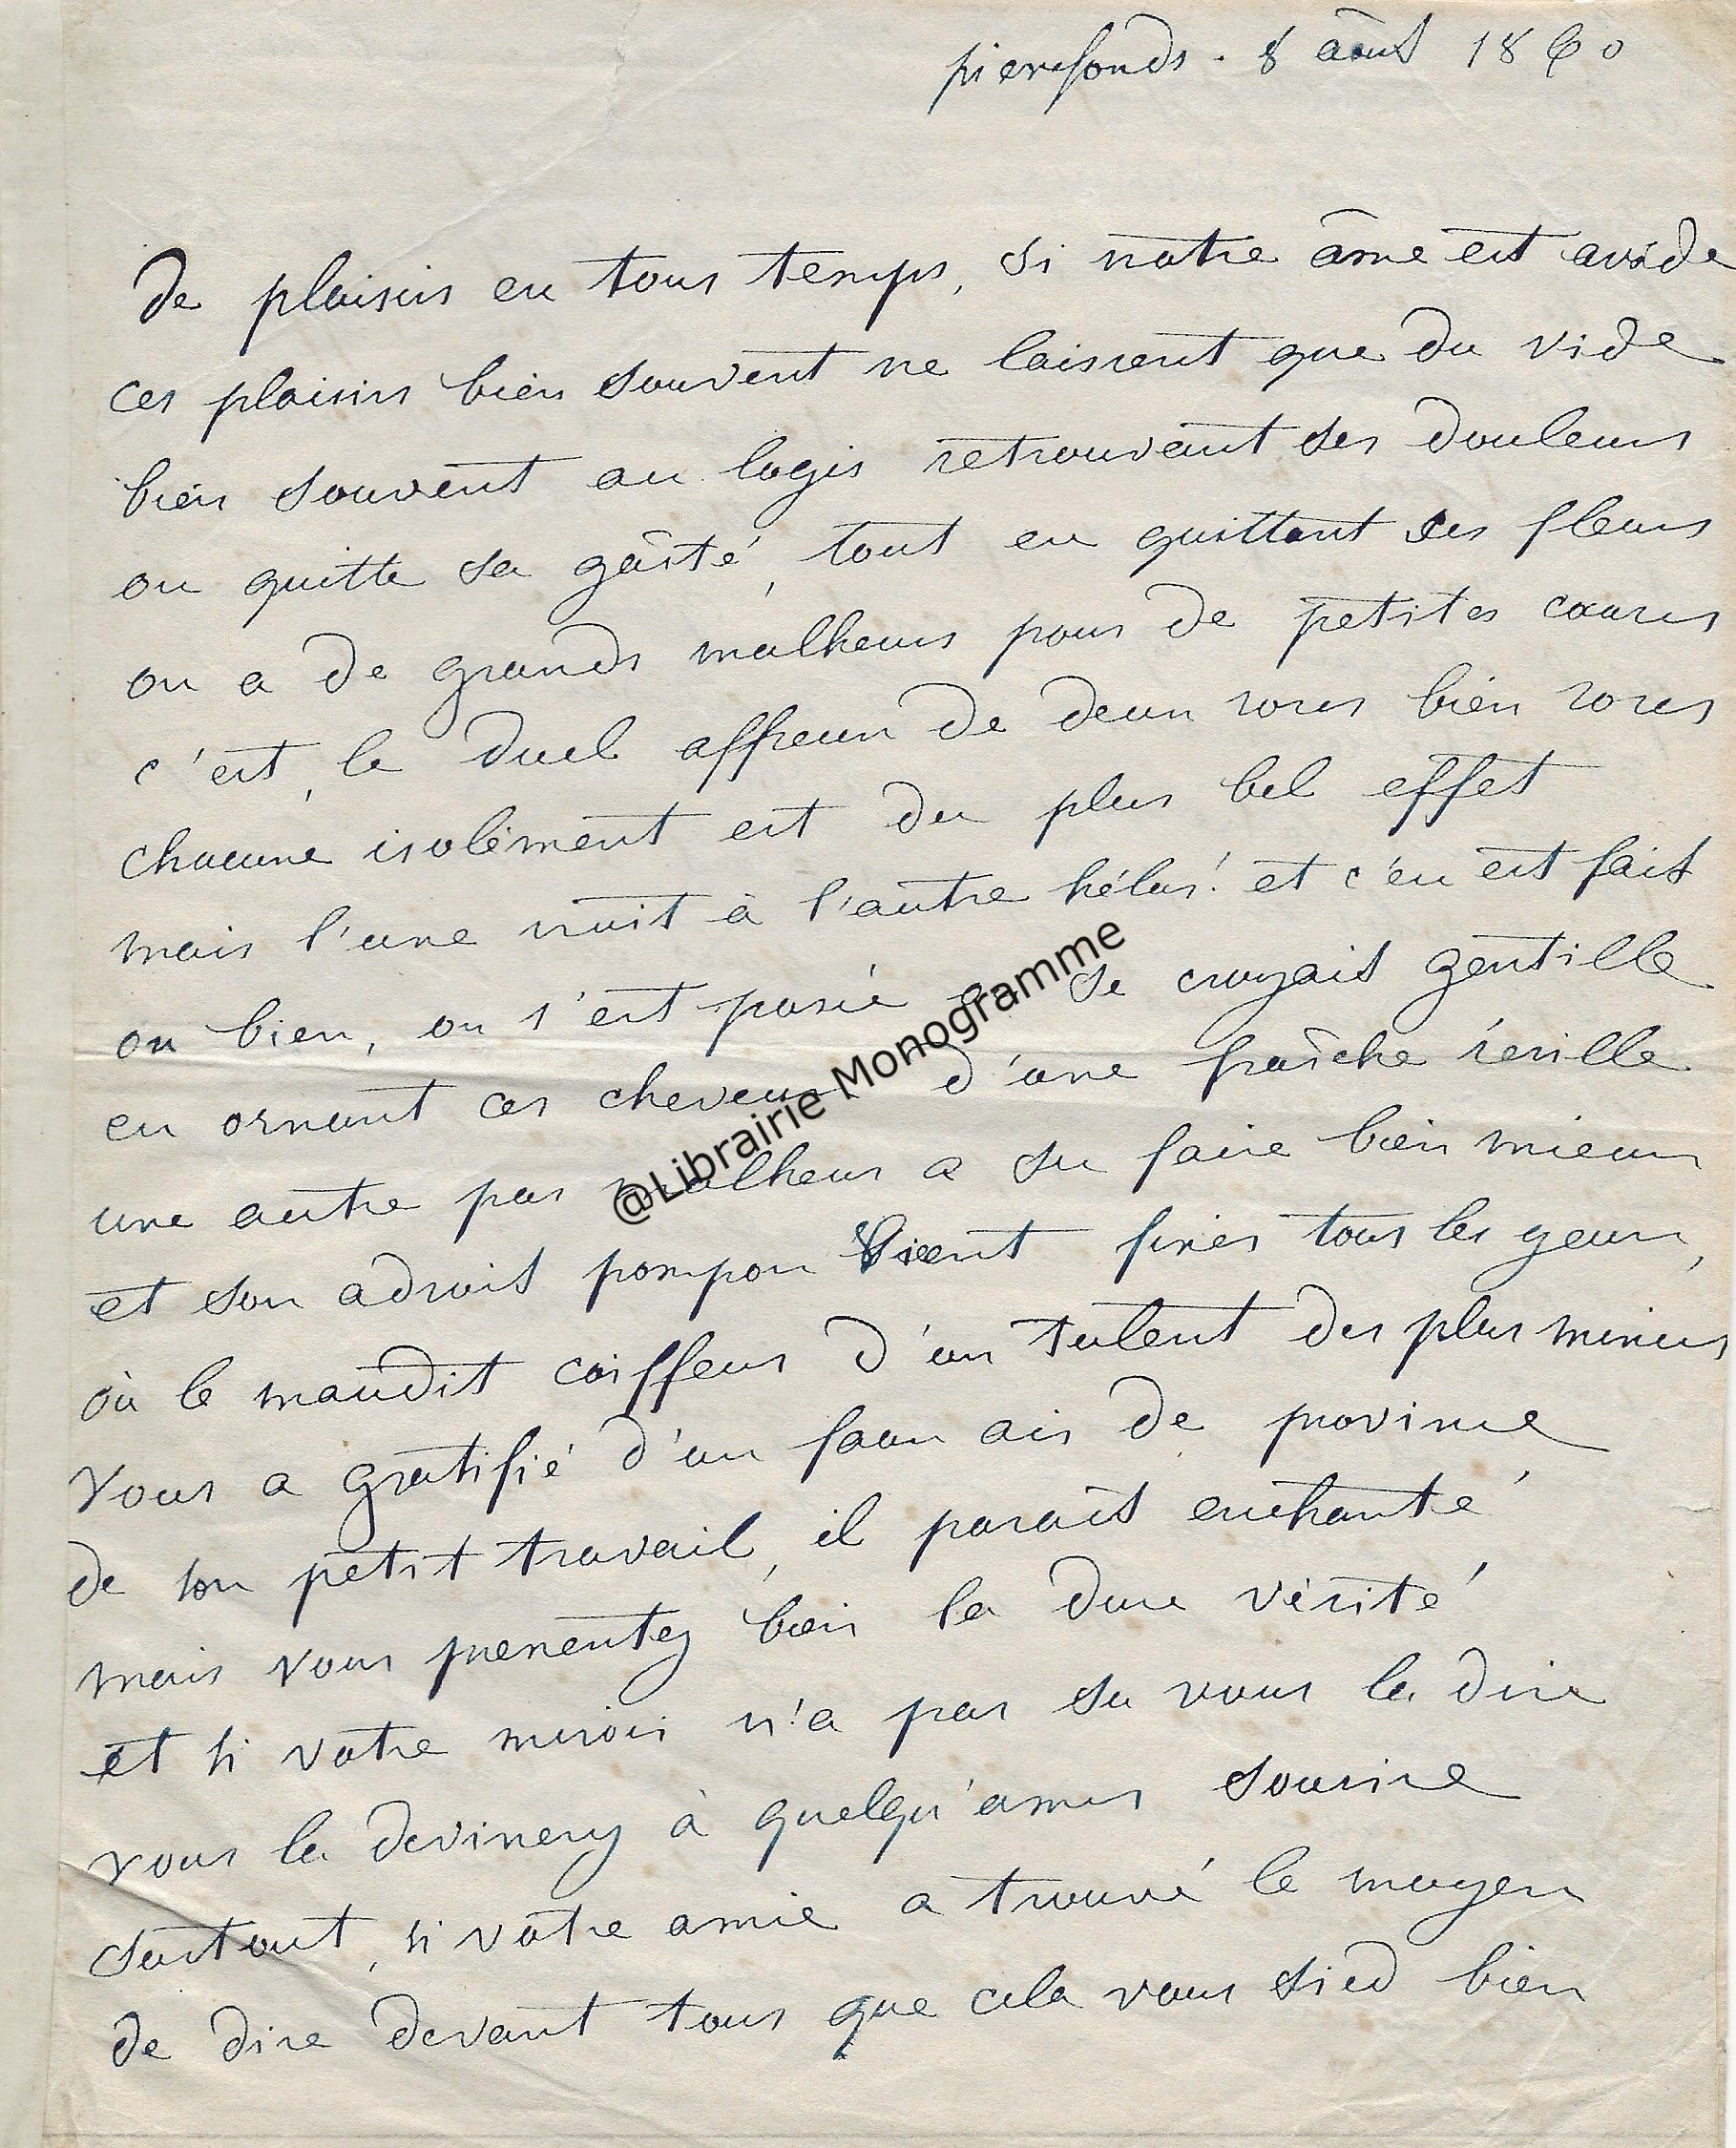 pierrefonds . 8 août 1860
de plaisirs en tous temps, si notre âme est avide
ces plaisirs bien souvent ne laissent que du vide
bien souvent au logis retrouvant ses douleurs
on quitte sa gâité, tout en quittant ses fleurs
on a de grands malheurs pour de petites causes
c'est, le duel affreux de deux roses bien roses
chacune isolément est du plus bel effet
mais l'une nuit à l'autre hélas! et c'en est fait
ou bien, on s'est posée se croyait gentille
en ornant ces cheveux d'une fraîche résille
une autre par malheur a su faire bien mieux
et son adroit pompon vient fixer tous les yeux,
où le maudit coiffeur d'un talent des plus minces
vous a gratifié d'un faux air de province
de son petit travail, il parait enchanté
mais vous pressentez bien la dure vérité
et si votre miroir n'a pas su vous la dire
vous la devinerez à quelqu'amer sourire
surtout, si votre amie a trouvé le moyen
de dire devant tous que cela vous sied bien
@Librairie Monogramme